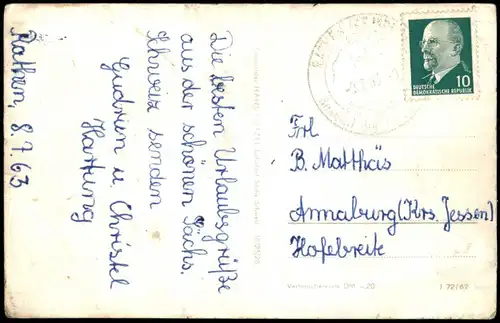 Rathen, 8.7.63
Die besten Urlaubsgrüße
aus der schönen Sächs.
Schweiz senden
Gudrun u. Christel
Hartung
10
DEUTSCHE
DEMOKRATISCHE REPUBLIK
Frl
B. Matthäs
Annaburg (Krs. Jessen)
Hofebreite
I 72/62